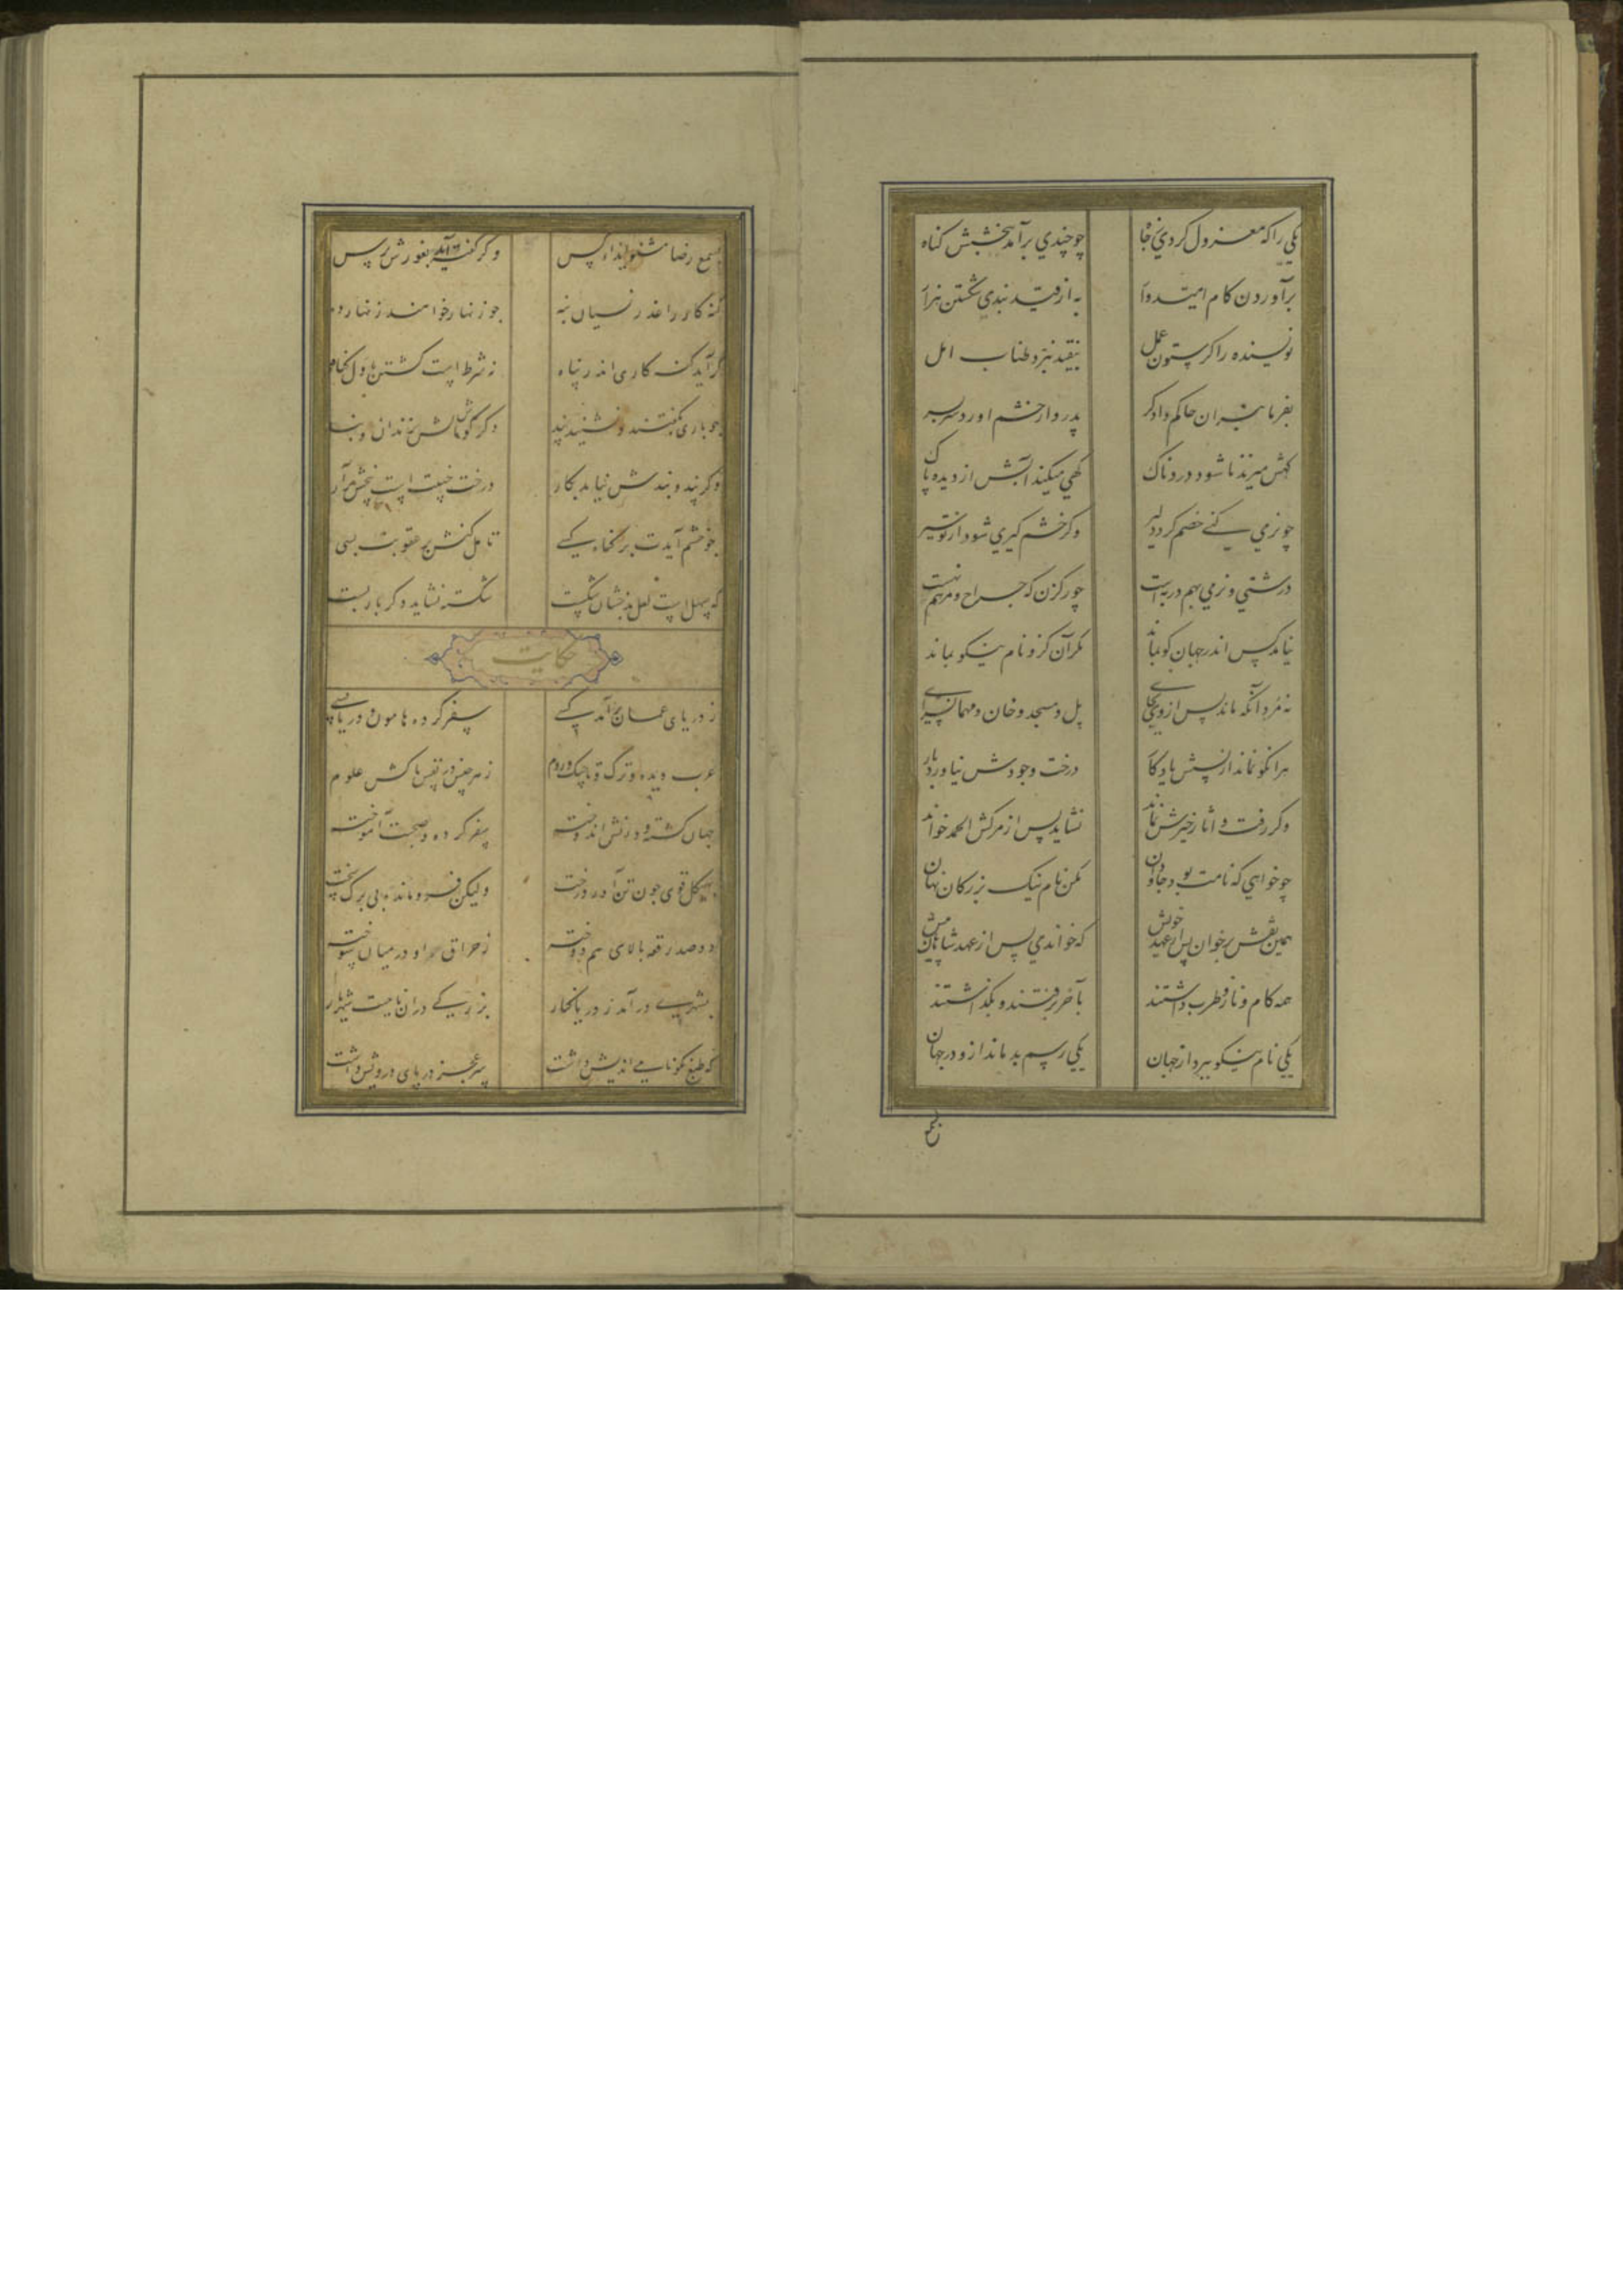 یکی را که معزول کردی ز جاه چو چندی برآمد ببخشش گناه
برآوردن کام امیدوار به از قید بندی شکستن هزار
نویسنده را گر ستون عمل بیفتد نبرد طناب امل
بفرمانبران حاکم دادگر پدروار خشم آورد بر پسر
گهش میزند تا شود دردناک گهی میکند آبش از دیده پاک
چو نرمی کنی خصم گردد دلیر وگر خشم گیری شود از تو سیر
درشتی و نرمی بهم در به است چو رگزن که جراح و مرهم نهست
نیامد کس اندر جهان کو بماند مگر آن کزو نام نیکو بماند
نمرد آنکه ماند پس از وی بجای پل و مسجد و خان و مهمانسرای
هر آنکو نماند از پسش یادگار درخت وجودش نیاورد بار
وگر رفت و آثار خیرش نماند نشاید پس از مرگش الحمد خواند
چو خواهی که نامت بود جاودان مکن نام نیک بزرگان نهان
همین نقش برخوان پس از عهد خویش که خواندی پس از عهد شاهان پیش
همه کام و ناز و طرب داشتند بآخر برفتند و بگذاشتند
یکی نام نیکو ببرد از جهان یکی رسم بد ماند ازو در جهان
بسمع رضا مشنو ایذاء کس وگر گفته آید بغورش برس
گنه کار را عذر نسیان بنه چو زنهار خواهند زنهار ده
گر آید گنه کاری اندر پناه نه شرط است کشتن باول گناه
چو باری بگفتند و نشنید پند دگر گوشمالش بزندان و بند
وگر پند و بندش نیاید بکار درخت خبیث است بیخش برآر
چو خشم آیدت بر گناه کسی تامل کنش در عقوبت بسی
که سهل است لعل بدخشان شکست شکسته نشاید دگر بار بست
حکایت
ز دریای عمان برآمد کسی سفر کرده هامون و دریا بسی
عرب دیده و ترک و تاجیک و روم ز هر جنس در نفس پاکش علوم
جهان گشته و دانش اندوخته سفر کرده و صحبت آموخته
بهیکل قوی چون تناور درخت ولیکن فرو مانده بی برگ سخت
دو صد رقعه بالای هم دوخته ز حراق او در میان سوخته
بشهری درآمد ز دریا کنار بزرگی در آن ناحیت شهریار
که طبع نکونامی اندیش داشت سر عجز در پای درویش داشت